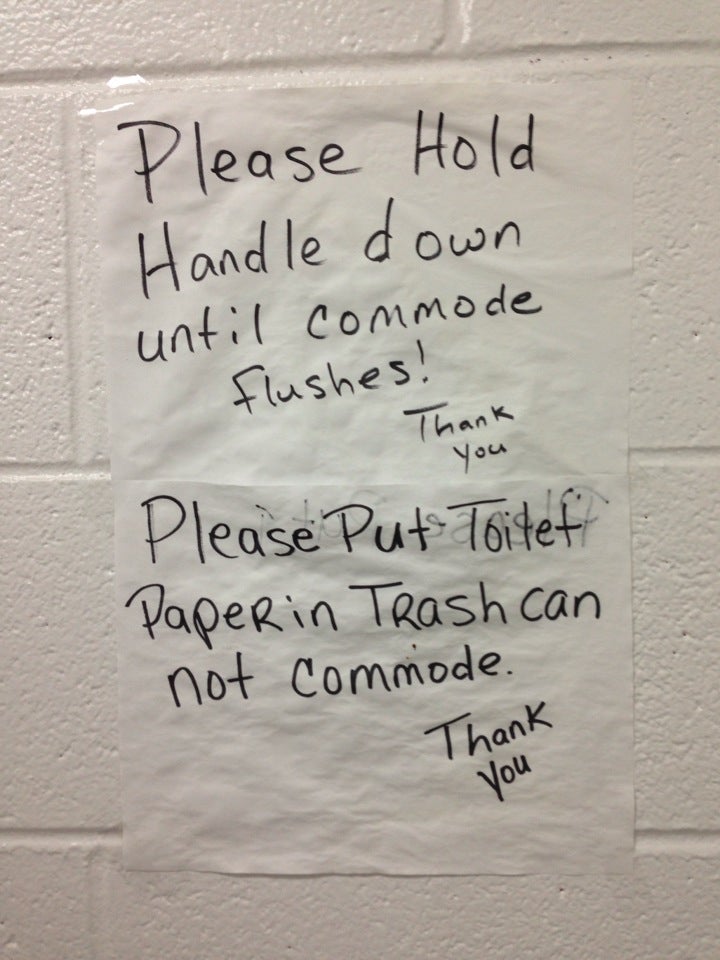 Please Hold
Handle down
until commode
flushes!
Thank
you
Please Put Toilet
Paper in Trash can
not commode.
Thank
you